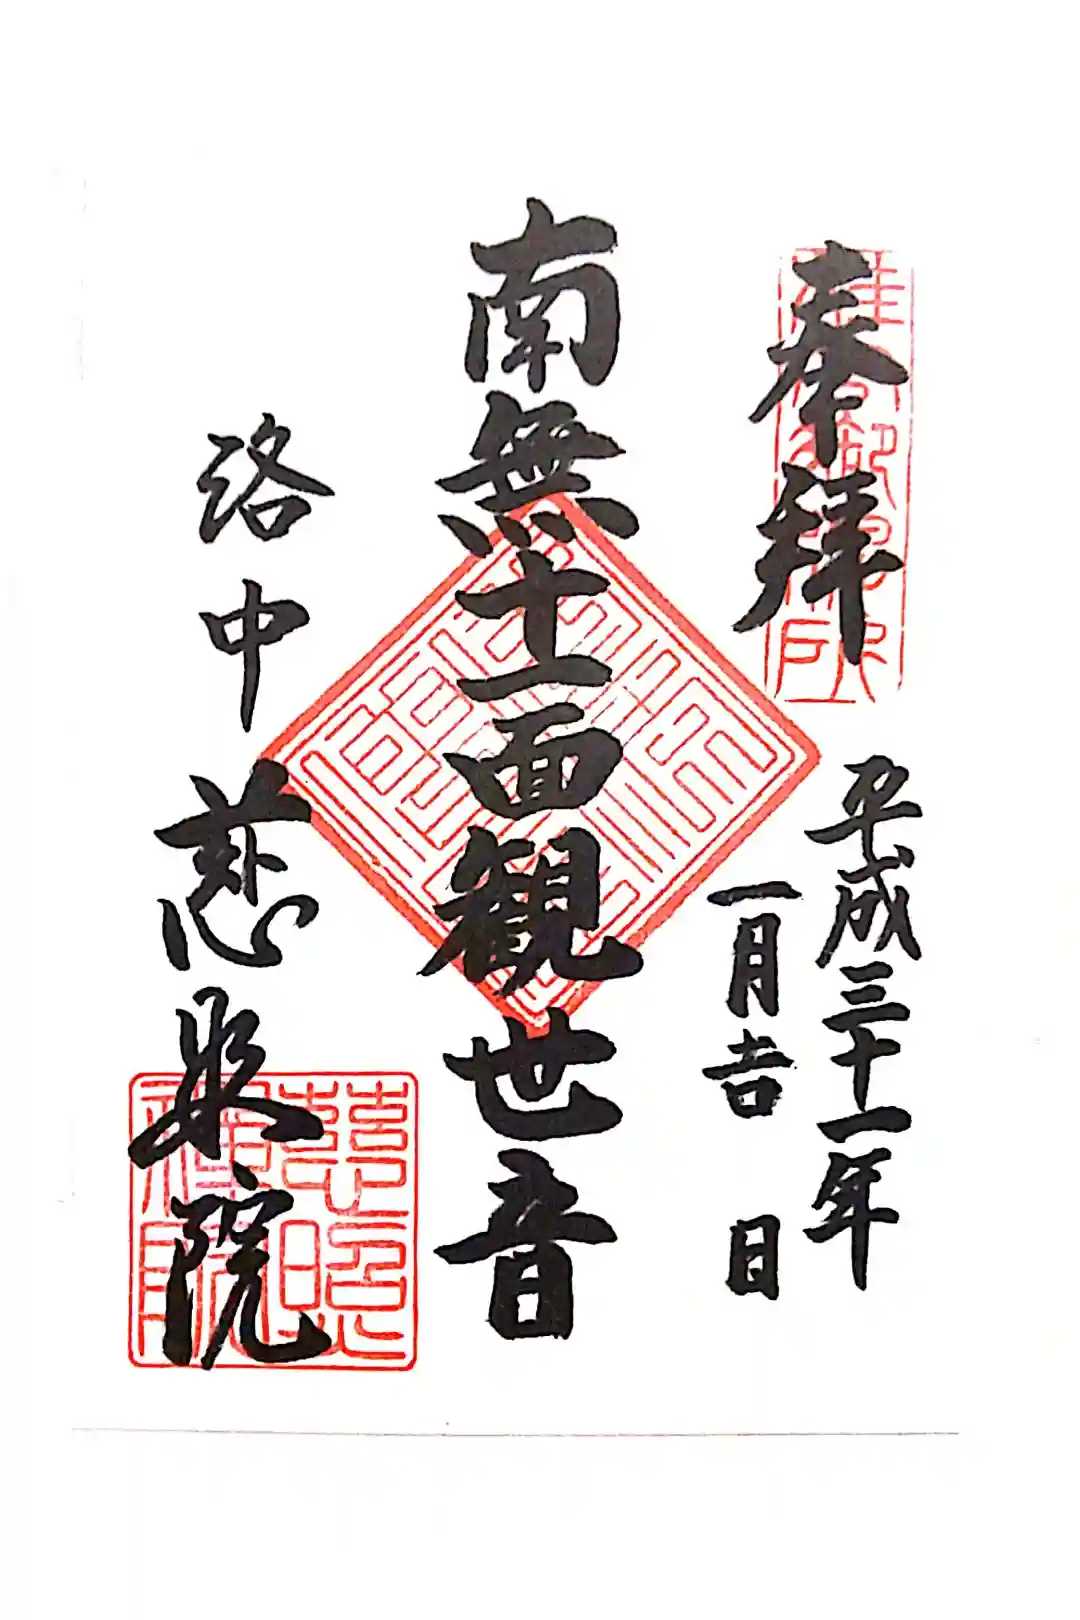 奉拝
平成三十一年
一月吉日
南無十一面観世音
洛中 慈照院
慈照
禅院